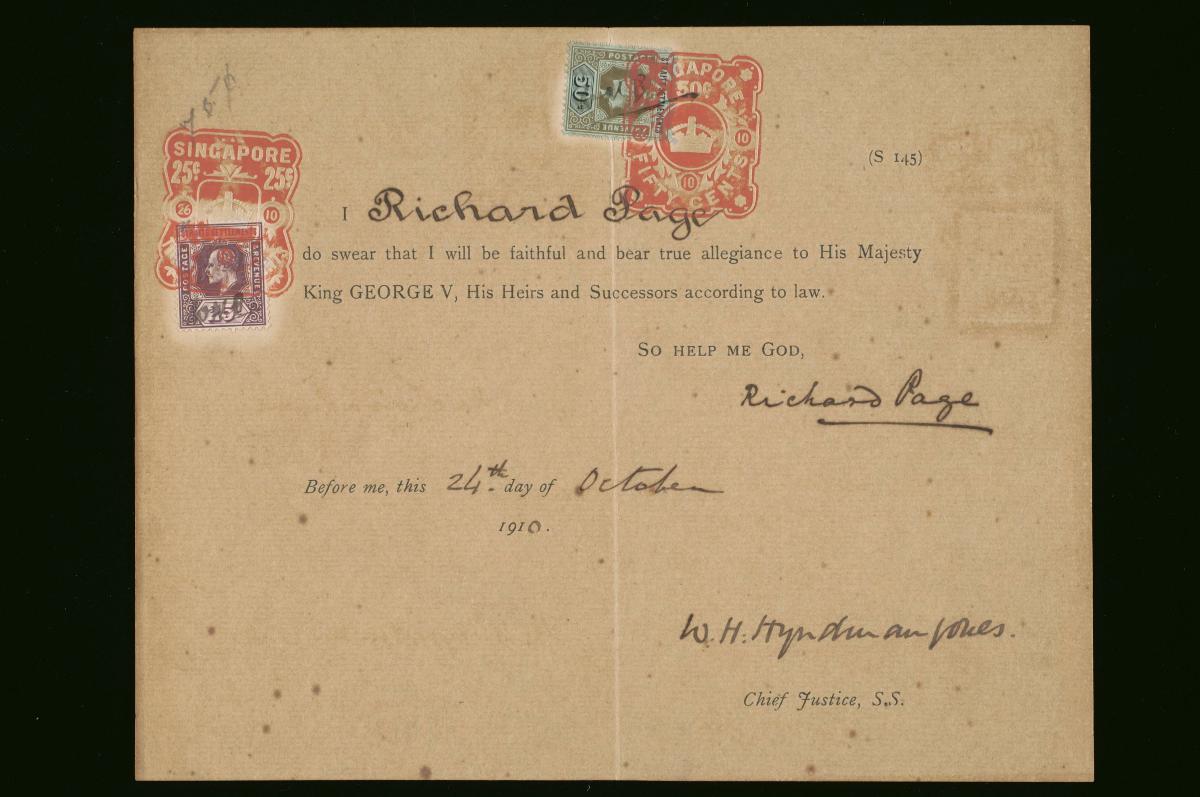 POSTAGE
50c
REVENUE
SINGAPORE
50c
10
10
FIFTY CENTS
SINGAPORE
25c 25c
26 10
POSTAGE & REVENUE
25c
(S 145)
I Richard Page
do swear that I will be faithful and bear true allegiance to His Majesty
King GEORGE V, His Heirs and Successors according to law.
SO HELP ME GOD,
Richard Page
Before me, this 24th day of October
1910.
W. H. Hyndman Jones.
Chief Justice, S.S.